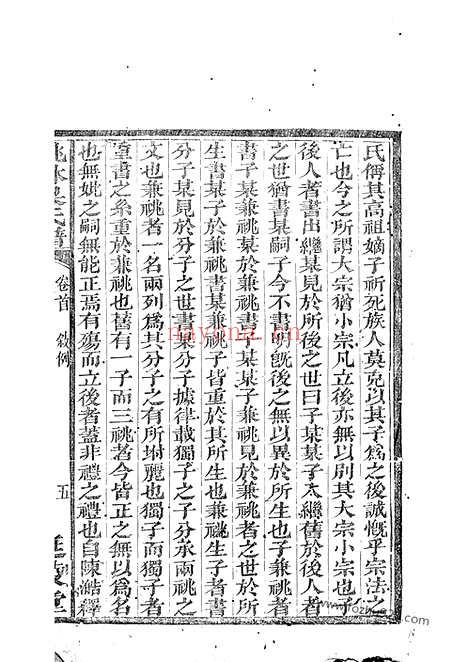 氏傳其高祖嫡子祈死族人莫克以其子為之後誠慨乎宗法之
亡也今之所謂大宗猶小宗凡立後亦無以別其大宗小宗也子
後人者書出繼某見於所後之世曰子某某子太繼舊於後人者
之世猶書某嗣子今不書明旣後之無以異於所生也子兼祧者
書子某某於兼祧書子某某子兼祧某於兼祧者之世書於所
生書子某於兼祧書某某兼祧子皆重於其所生也兼祧生子者書
分子某見於分子之世書某分子據律載獨子之子分承兩祧之
文也兼祧者一名兩列為其分子之有所坿麗也獨子而獨子者
直書之系重於兼祧也舊有一子而三祧者今皆正之無以為名
也無妣之嗣無能正焉有殤而立後者蓋非禮之禮也自陳澔釋
氏譜
卷首
敘例
五
堂
nayona.cn